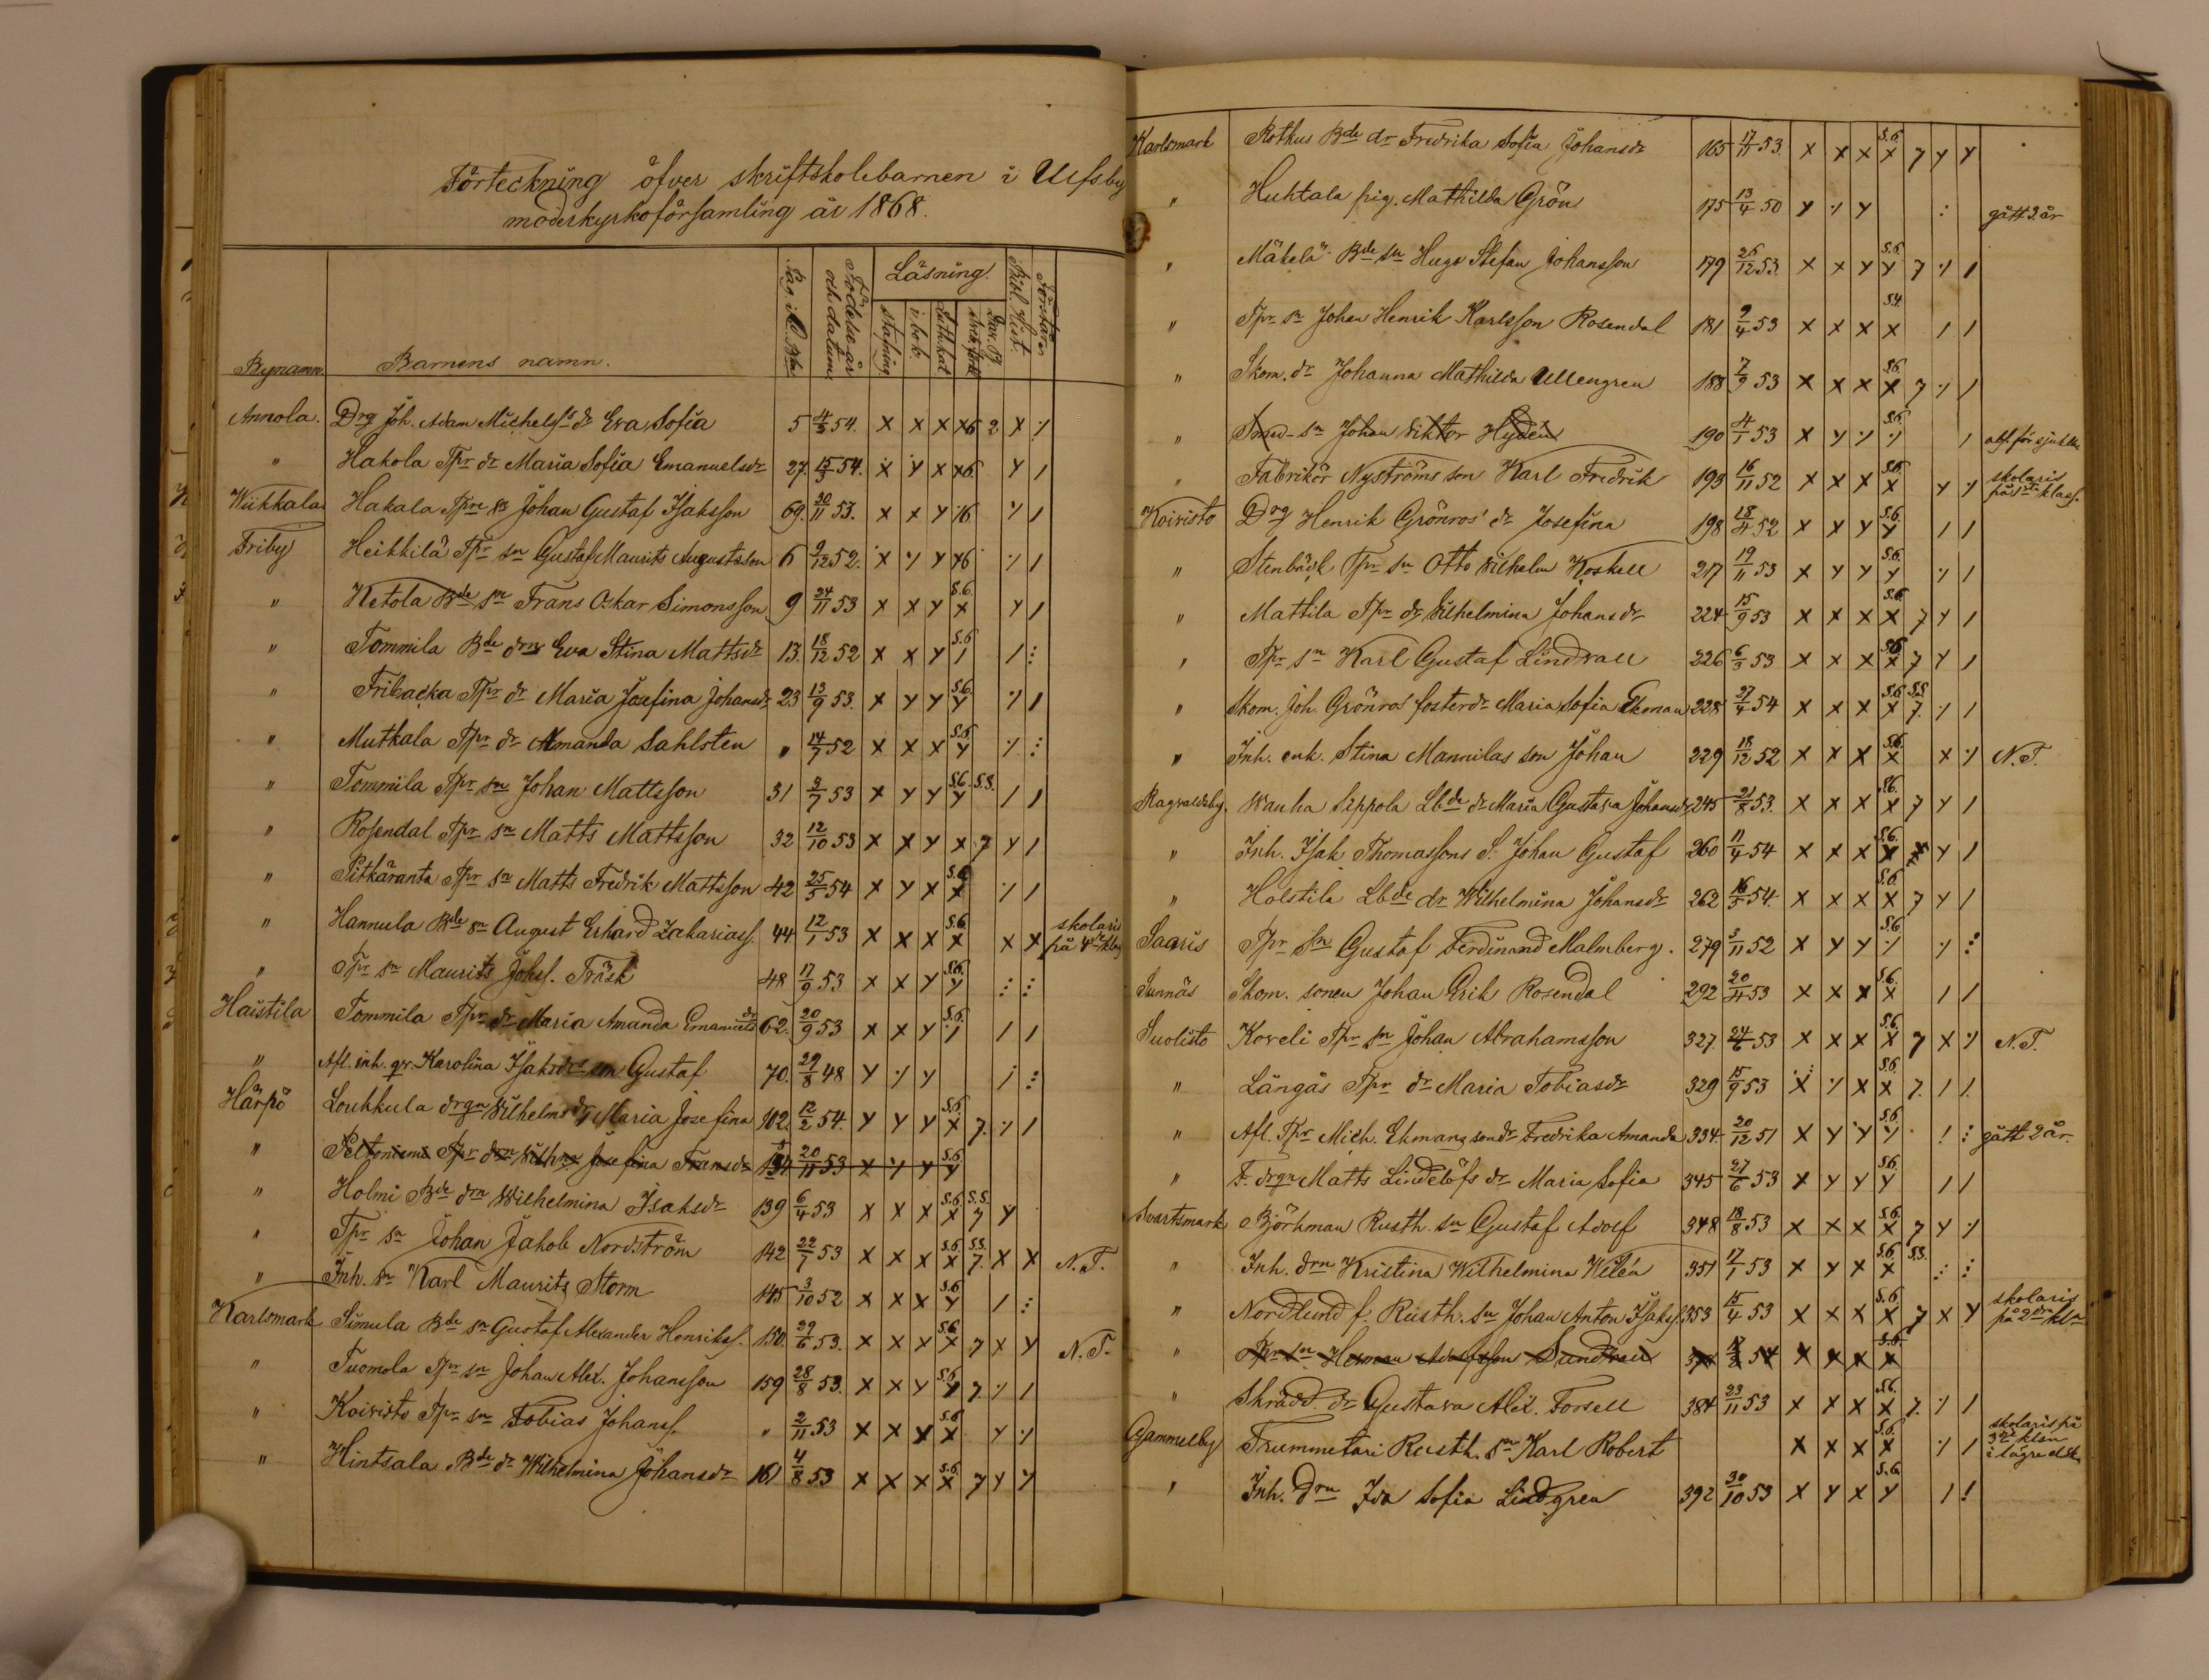 Förteckning öfver skriftskolebarnen i Ulfsby
moderkyrkoförsamling år 1868.
Bynamn. Barnens namn. Födelse år och datum Läsning. stafning i bok. Bibl. Hist.
Annola. Drg Joh. Adam Michelss dr Eva Sofia 5 4/3 54. x x x x6 2 x ⁒
" Hakola Tpr dr Maria Sofia Emanuelsdr 27. 15/3 54. x y x x6 y /
Wiikkala Hakala Tpre sn Johan Gustaf Isaksson 69. 30/11 53. x x y 16 ⁒ /
Friby Heikkilä Tpr sn Gustaf Maurits Augustsson 6 9/12 52. x ⁒ y x6 ⁒ /
" Ketola Bde sn Frans Oskar Simonsson 9 24/11 53 x x y S.6. x y /
" Tommila Bde drn Eva Stina Mattsdr 13. 18/12 52 x x y S.6 / / ⋮
" Fribacka Tpr dr Maria Josefina Johansdr 23 13/9 53. x y y S.6. y ⁒ /
" Mutkala Tpr dr Amanda Sahlsten " 14/7 52 x x x S.6. y ⁒ ⋮
" Tommila Tpr sn Johan Mattsson 31 2/7 53 x y y S.6. y S.S. / /
" Rosendal Tpr sn Matts Mattsson 32 12/10 53 x x y x 7 y /
" Pitkäranta Tpr sn Matts Fredrik Mattsson 42 25/5 54 x y x S.6 x ⁒ /
" Hannula Bde sn August Erhard Zakariass. 44 12/1 53 x x x S.6. x x x skolaris på 4de klass
" Tpr sn Maurits Johss. Träsk 48 17/9 53 x x y S.6. y ⋮ ⋮
Haistila Tommila Tpr dr Maria Amanda Emanuelsdr 62. 20/9 53 x x y S.6. ⁒ / /
" Afl. inh. qv. Karolina Isaksdrs son Gustaf 70. 29/8 48 y ⁒ y / ⋮
Härpö Loukkula drgn Wilhelms dr Maria Josefina 102. 12/2 54. y y y S.6. x 7. ⁒ /
" Peltoniemi Tpr drn Josefina Fransdr 134 20/11 53 x ⁒ y S.6. y
" Holmi Bde drn Wilhelmina Isaksdr 139 6/4 53 x x x S.6. x S.S. 7 y
" Tpr sn Johan Jakob Nordström 142 22/7 53 x x x S.6. x S.S. 7. x x N.T.
" Inh. sn Karl Maurits Storm 145 3/10 52 x x x S.6 y / ⋮
Karlsmark Simula Bde sn Gustaf Alexander Henrikss. 150. 29/6 53. x x x S.6 x 7 x y N.T.
" Tuomola Tpr sn Johan Alex. Johansson 159 28/8 53. x x y S.6. y 7 ⁒ /
" Koivisto Tpr sn Tobias Johanss. " 2/11 53 x x x S.6 x y ⁒
" Hintsala Bde dr Wilhelmina Johansdr 161 4/8 53 x x x S.6. x 7 y y
Karlsmark Rothus Bde dr Fredrika Sofia Johansdr 165 17/11 53. x x x S.6. x 7 y y
" Huhtala pig. Mathilda Grön 175 13/4 50 y ⁒ y : gått 2 år
" Mäkelä Bde sn Hugo Stefan Johansson 179 26/12 53. x x y S.6. y 7 ⁒ /
" Tpr sn Johan Henrik Karlsson Rosendal 181 9/4 53 x x x S.4. x / /
" Skom. dr Johanna Mathilda Ullengren 188 7/9 53 x x x S.6. x 7 ⁒ /
" Smed- sn Johan Viktor Hydén 190 4/1 53 x y ⁒ S.6. ⁒ / abs. för sjukd.
" Fabrikör Nyströms son Karl Fredrik 193 16/11 52 x x x S.6. x y ⁒ skolaris på 1sta klass.
Koivisto Drg Henrik Grönros' dr Josefina 198 18/4 52 x x y S.6. y / /
" Stenbäck Tpr sn Otto Vilhelm Koskell 217 19/11 53 x y y S.6. y ⁒ /
" Mattila Tpr dr Vilhelmina Johansdr 224 15/9 53 x x x S.6. x 7 y /
" Tpr sn Karl Gustaf Lindvall 226 6/3 53 x x x S.6. x 7 y /
" Skom. Joh. Grönros' fosterdr Maria Sofia Ekman 228 27/4 54 x x x S.6. x S.S. 7. ⁒ /
" Inh. enk. Stina Mannilas son Johan 229 18/12 52 x x x S.6. x x ⁒ N.T.
Ragvaldsby. Wanha Sippola Lbde dr Maria Gustava Johansdr 245 21/8 53. x x x S.6. x 7 y /
" Inh. Isak Thomassons S. Johan Gustaf 260 11/4 54 x x x S.6. x y /
" Holstila Lbde dr Wilhelmina Johansdr 262 16/5 54. x x x S.6. x 7 y /
Saaris Tpr sn Gustaf Ferdinand Malmberg. 279 3/11 52 x y y S.6 ⁒ ⁒ ⋮
Sunnäs Skom. sonen Johan Erik Rosendal 292 20/4 53 x x x S.6. x / /
Suolisto Koveli Tpr sn Johan Abrahamsson 327. 24/6 53 x x x S.6. x 7 x ⁒ N.T.
" Långås Tpr dr Maria Tobiasdr 329 15/9 53 x ⁒ x S.6. x 7. / /.
" Afl. Tpr Mich. Ekmans sondr Fredrika Amanda 334. 20/12 51 x y y S.6. y ! ⋮ gått 2 år.
" F. drgn Matts Lindelöfs dr Maria Sofia 345 27/6 53 x y y S.6. y / /
Svartsmark Björkman Rusth. sn Gustaf Adolf 348 18/8 53 x x x S.6. x 7 y ⁒
" Inh. drn Kristina Wilhelmina Wilén 351 17/1 53 x y x S.6. x S.S. ⋮ ⋮
" Nordlund f. Rusth. sn Johan Anton Isakss. 353 15/4 53 x x x S.6 x 7 x y skolaris på 2dra kl.
" Tpr sn Herman Adolfsson Sundvall 54 x x x S.6. x
" Skrädd. dr Gustava Alex. Forsell 384 23/11 53 x x x S.6. x 7. ⁒ /
Gammelby Trummetari Rusth. sn Karl Robert x x x S.6. x ⁒ / skolaris på 3dje klass i lägre elem.
" Inh. drn Ida Sofia Lindgren 392 30/10 53 x y x S.6. y / !